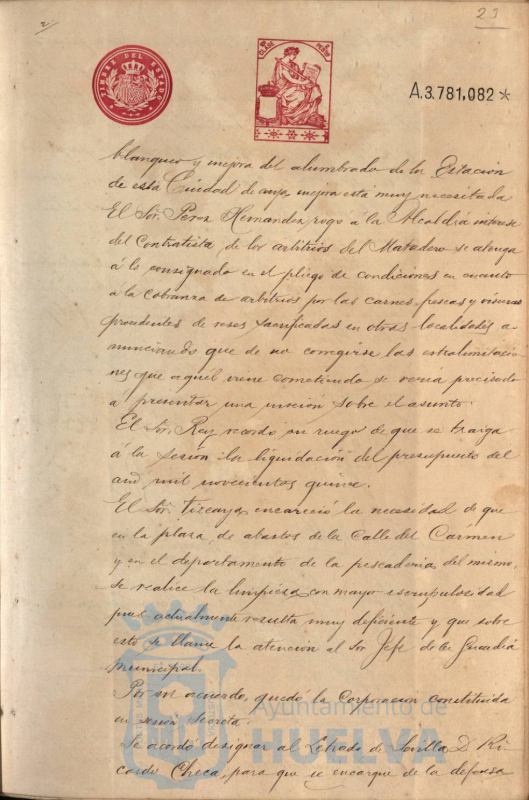 2
23
TIMBRE DEL ESTADO
A.3.781,082*
blanqueo y mejora del alumbrado de la Estación
de esta Ciudad de cuya mejora está muy necesitada
El Sor. Perez Hernandez rogó á la Alcaldía interese
del Contratista de los arbitrios del Matadero se atenga
á lo consignado en el pliego de condiciones en cuanto
á la cobranza de arbitrios por las carnes frescas y vísceras
procedentes de reses sacrificadas en otras localidades a-
nunciando que de no corregirse las extralimitacio
nes que aquel viene cometiendo se vería precisado
a presentar una moción sobre el asunto.
El Sor. Rey recordó su ruego de que se traiga
á la sesión la liquidación del presupuesto del
año mil novecientos quince.
El Sor. Tiscar encareció la necesidad de que
en la plaza de abastos de la Calle del Carmen
y en el departamento de la pescadería del mismo,
se realice la limpieza con mayor escrupulosidad
pues actualmente resulta muy deficiente y que sobre
esto se llame la atención al Sor Jefe de la Guardia
Municipal.
Por su acuerdo, quedó la Corporación constituida
en sesión Secreta.
Se acordó designar al Letrado de Sevilla D. Ri-
cardo Checa, para que se encargue de la defensa
Ayuntamiento de
HUELVA